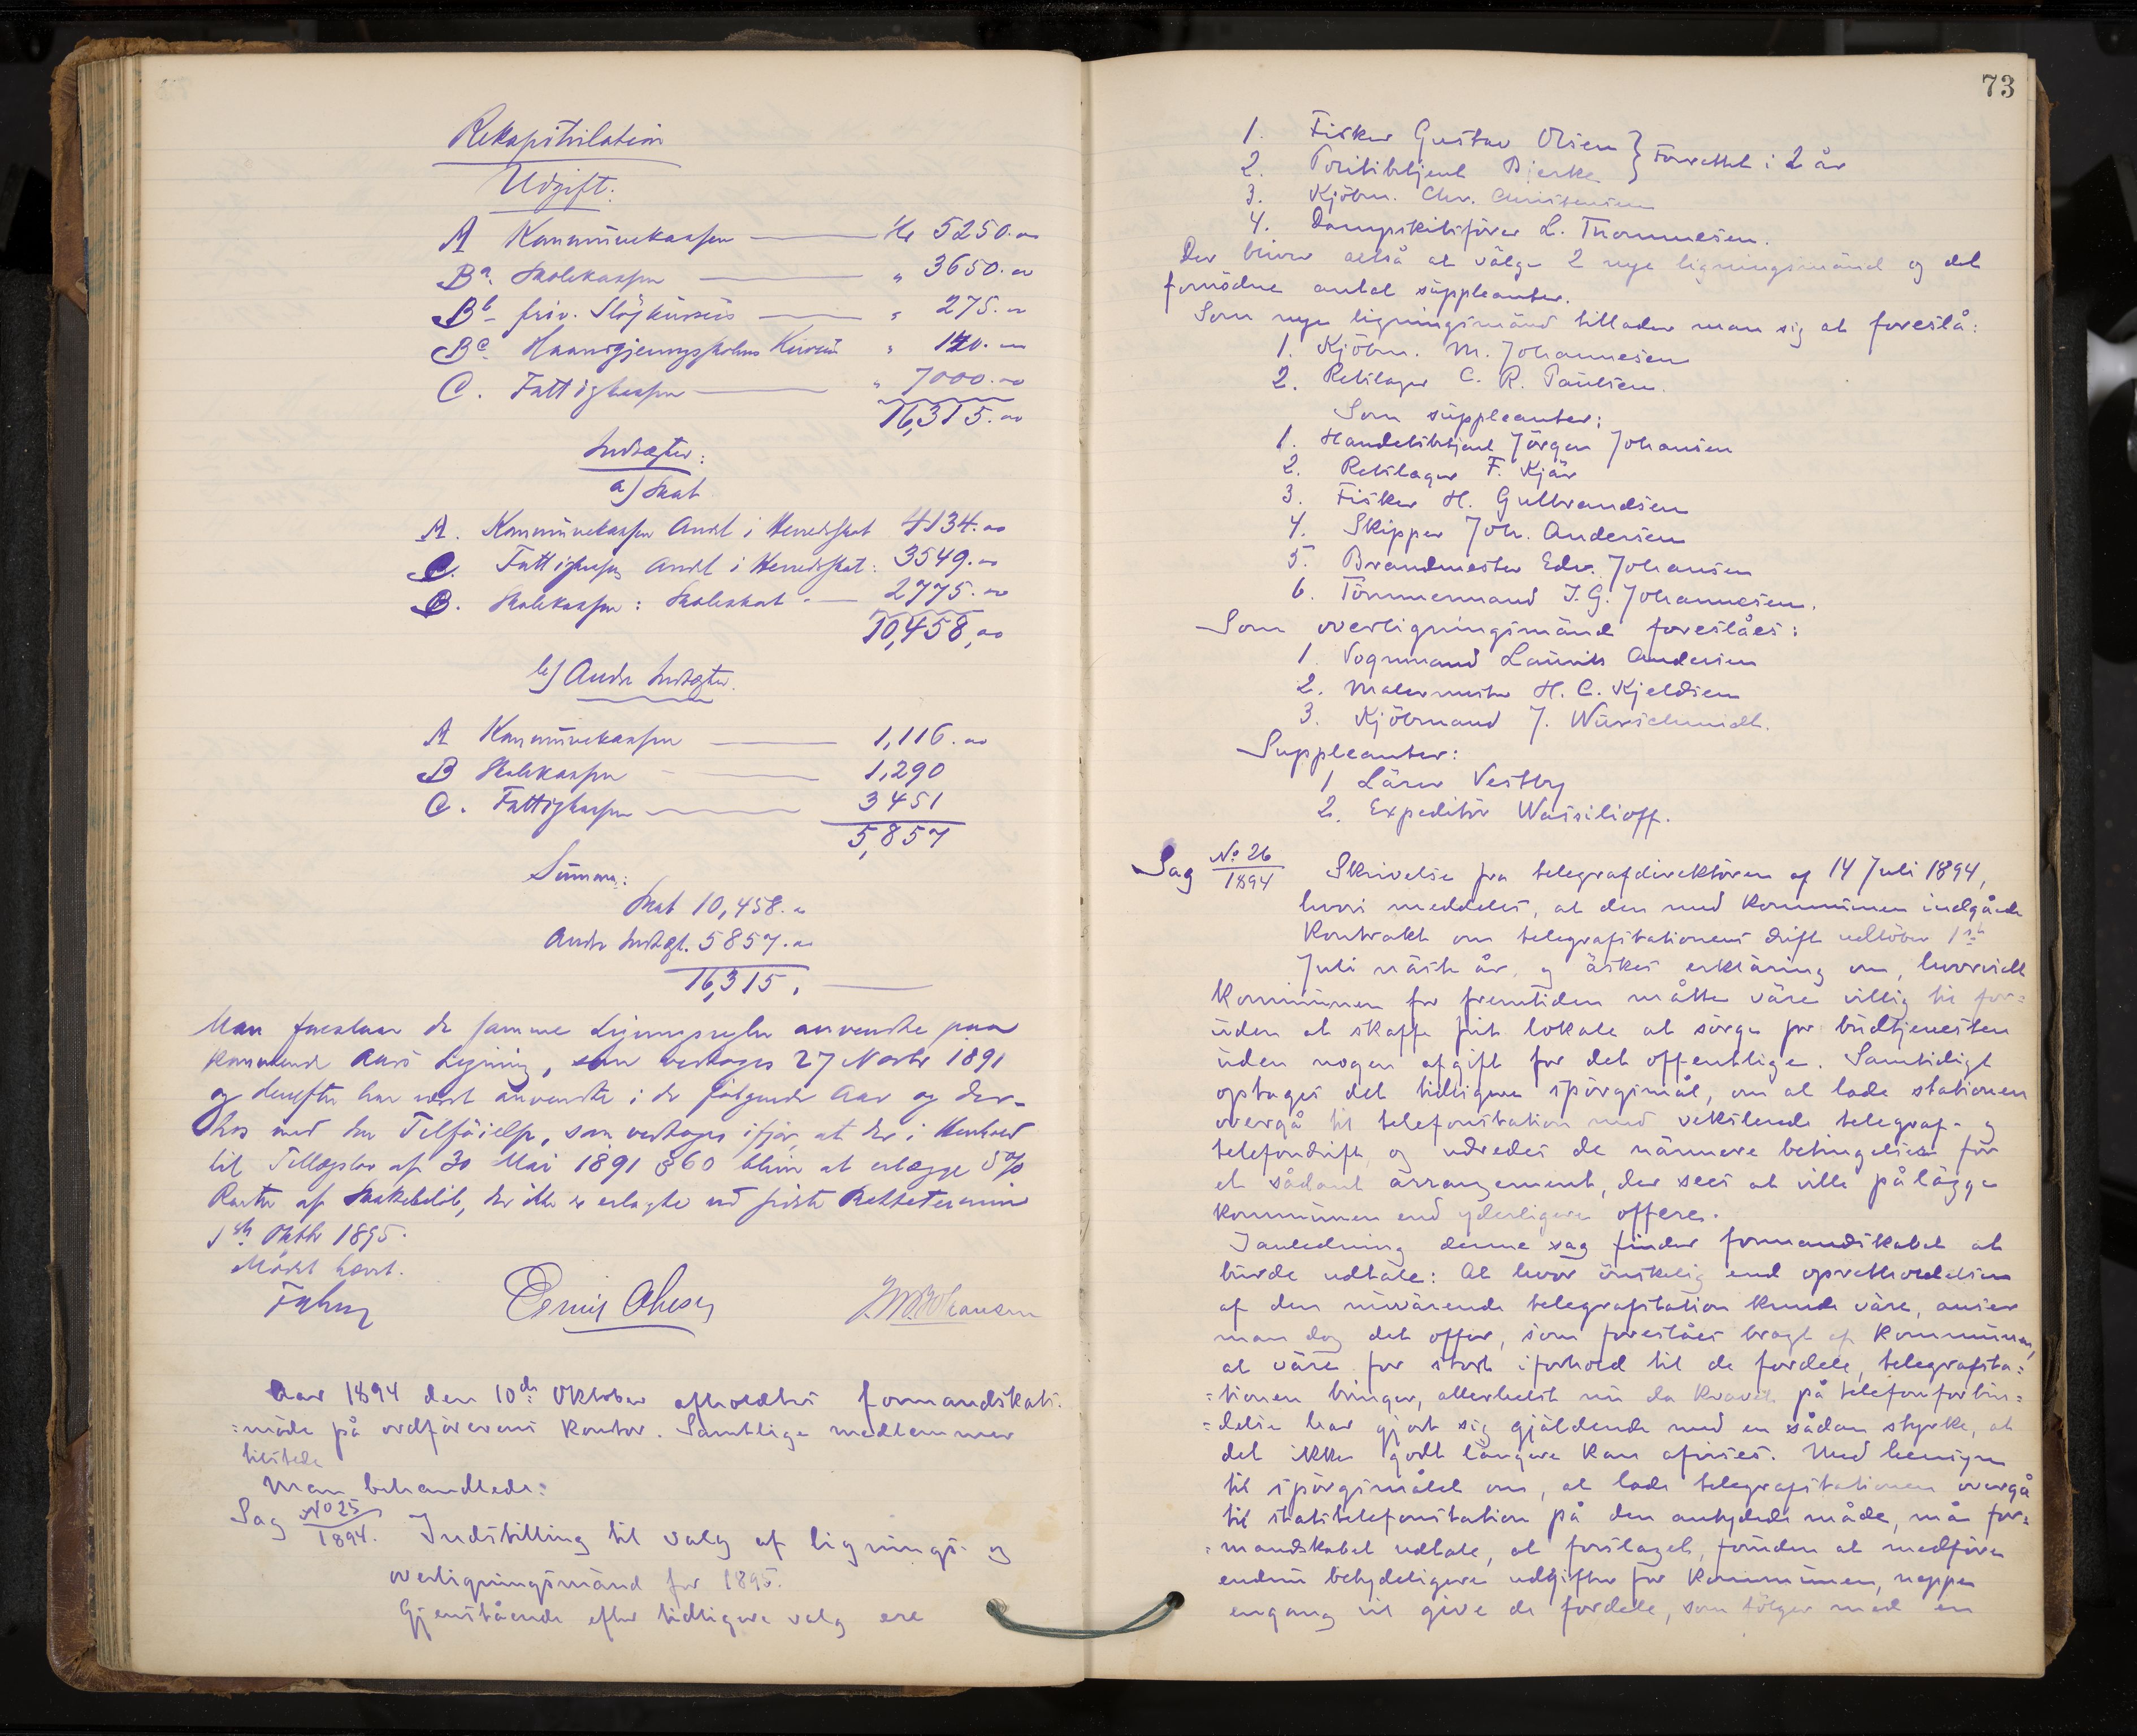 Rekapitulation
Udgift:
A Kommunekassen Kr 5250.00
Ba. Skolekassen " 3650.00
Bb - friv. Slöjkursus " 275.00
Bc. Haandgjerningsskolens Kursus " 140.00
C. Fattigkassen " 7000.00
16,315.00
Indtægter:
a) Skat
A. Kommunekassen Andel i Herredskat 4134.00
C. Fattigkassens Andel i Herredskat: 3549.00
B. Skolekassen: Skoleskat - 2775.00
10,458,00
b) Andre Indtægter.
A Kommunekassen 1,116.00
B Skolekassen 1,290
C. Fattigkassen 3451
5,857
Summa:
Skat 10,458.00
Andre Indtægt. 5857.00
16,315.
Man foreslaar de samme Ligningsregler anvendte paa
kommende Aars Ligning, som vedtoges 27 Novbr 1891
og derefter har vært anvendte i de følgende Aar og der-
hos med den Tilföielse, som vedtoges ifjor, at der i Henhold
til Tillægslov af 30 Mai 1891 § 60 bliver at erlægge 5%
Renter af Skattebelöb, der ikke er erlagte ved förste Skattetermin
1ste Oktbr 1895.
Mödet hævet.
Emil Olsen
Johansen
Aar 1894 den 10de Oktober afholdtes formandskabs:
:möde på ordförerens kontor. Samtlige medlemmer
tilstede
Man behandlede:
Sag No 25
1894. Indstilling til valg af lignings- og
overligningsmänd for 1895.
Gjenstående efter tidligere valg ere
73
1. Fisker Gustav Olsen } Fravalgt i 2 år
2. Politibetjent Bjerke
3. Kjöbm. Chr. Christensen
4. Dampskibsförer L. Thommesen.
Der bliver altså at välge 2 nye ligningsmänd og det
fornödne antal suppleanter.
Som nye ligningsmänd tillader man sig at foreslå:
1. Kjöbm. M. Johannesen
2. Rebslager C. R. Paulsen.
Som suppleanter:
1. Handelsbetjent Jörgen Johansen
2. Rebslager F. Kjär
3. Fisker H. Gulbrandsen
4. Skipper Joh. Andersen
5. Brandmester Edv. Johansen
6. Tömmermand J. G. Johannesen.
Som overligningsmänd foreslåes:
1. Vognmand Laurits Andersen
2. Malermester H. C. Kjeldsen
3. Kjöbmand J. Würschmidt.
Suppleanter:
1 Lärer Vestby
2. Expeditör Wassilioff.
Sag No 26
1894 Skrivelse fra telegrafdirektören af 14 Juli 1894,
hvori meddeles, at den med kommunen indgåede
kontrakt om telegrafstationens drift udlöber 1ste
Juli näste år, og äskes erkläring om, hvorvidt
kommunen for fremtiden måtte väre villig til for=
uden at skaffe frit lokale at sörge for budtjenesten
uden nogen afgift for det offentlige. Samtidigt
optages det tidligere spörgsmål, om at lade stationen
overgå til telefonstation med vekslende telegraf- og
telefondrift, og udredes de närmere betingelser for
et sådant arrangement, der sees at ville pålägge
kommunen end yderligere offere.
I anledning denne sag finder formandskabet at
burde udtale: At hvor önskelig end opretholdelsen
af den nuvärende telegrafstation kunde väre, anser
man dog det offer, som foreslåes bragt af kommunen,
at väre for stort i forhold til de fordele, telegrafsta=
=tionen bringer, allerhelst nu da kravet på telefonforbin=
=delse har gjort sig gjäldende med en sådan styrke, at
det ikke godt längere kan afvises. Med hensyn
til spörgsmålet om, at lade telegrafstationen overgå
til statstelefonstation på den antydede måde, må for=
=mandskabet udtale, at forslaget, foruden at medföre
endnu betydeligere udgifter for kommunen, neppe
engang vil give de fordele, som fölger med en